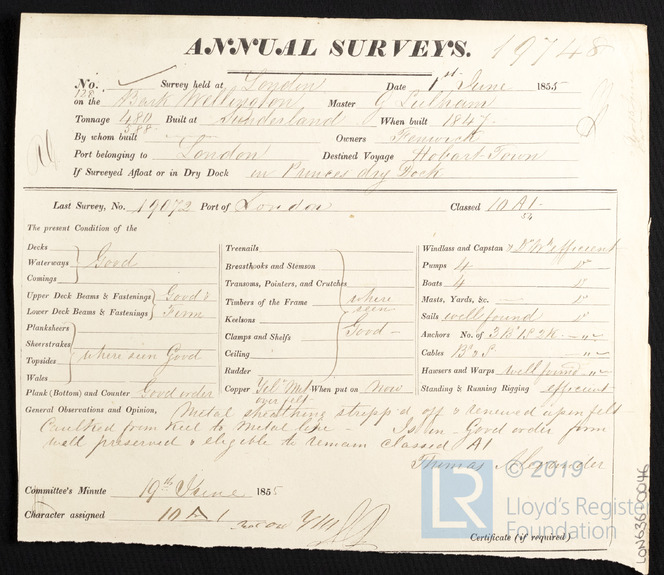 ANNUAL SURVEYS. 19748
No. 128 Survey held at London Date 1st June 1855
on the Bark Wellington Master G Lulham
Tonnage 480 Built at Sunderland When built 1847.
588
By whom built Owners Fenwick
Port belonging to London Destined Voyage Hobart Town
If Surveyed Afloat or in Dry Dock in Princes dry Dock
Last Survey, No. 19072 Port of London Classed 10 A1
54
The present Condition of the
Decks
Waterways Good
Comings
Upper Deck Beams & Fastenings Good &
Lower Deck Beams & Fastenings Firm
Planksheers
Sheerstrakes
Topsides where seen Good
Wales
Plank (Bottom) and Counter Good order
Treenails
Breasthooks and Stemson
Transoms, Pointers, and Crutches
Timbers of the Frame where
seen
Keelsons
Good
Clamps and Shelfs
Ceiling
Rudder
Copper Yel. Met When put on Now
over felt
Windlass and Capstan & efficient
Pumps 4
Boats 4
Masts, Yards, &c.
Sails well found
Anchors No. of 3 B 1 S 2 K
Cables
Hawsers and Warps well found
Standing & Running Rigging efficient
General Observations and Opinion, Metal sheathing stripp'd off & renewed upon felt
Caulked from Keel to Metal line - Is in Good order firm
well preserved & eligible to remain classed A1
Thomas Alexander
Committee's Minute 19th June 1855
Character assigned 10 A 1
Certificate (if required)
LR © 2019
Lloyd's Register
Foundation
LON636-0046